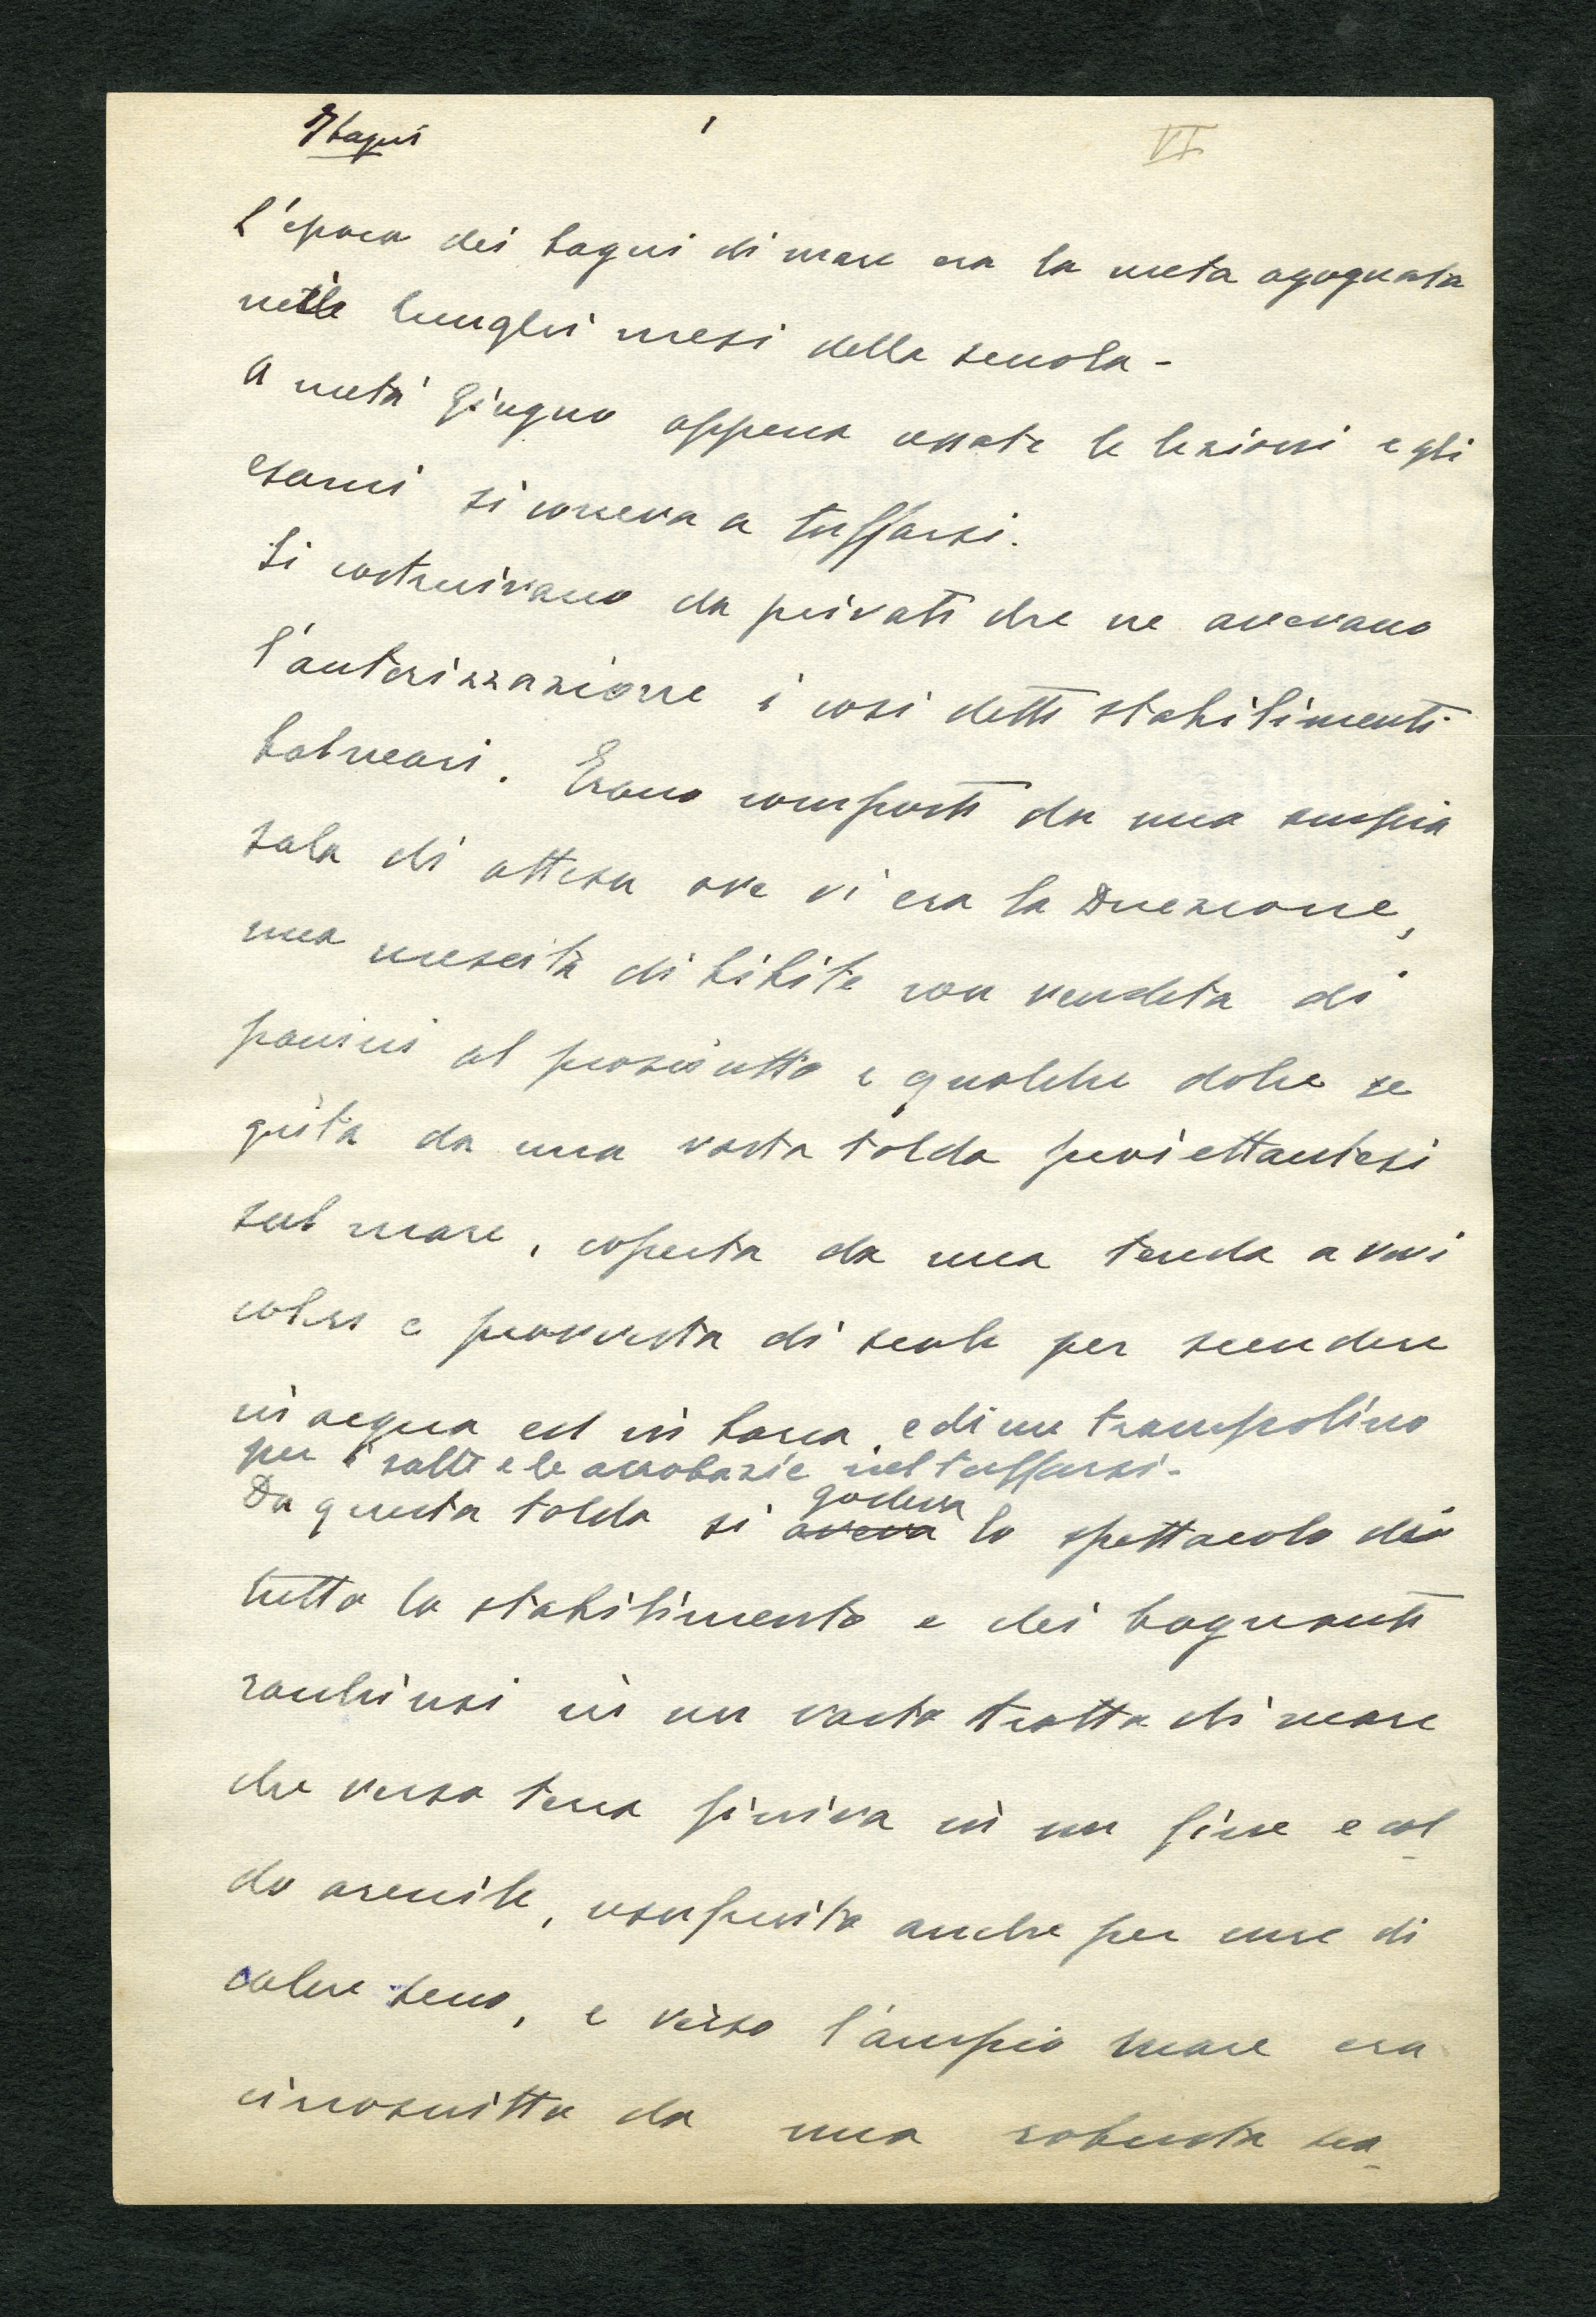 I bagni
1
VI
L'epoca dei bagni di mare era la meta agognata
nelle lunghi mesi della scuola -
A metà Giugno appena cessate le lezioni e gli
esami si correva a tuffarsi.
Si costruivano da privati che ne avevano
l'autorizzazione i così detti stabilimenti
balneari. Erano composti da una ampia
sala di attesa ove vi era la Direzione,
una mescita di bibite con vendita di
panini al prosciutto e qualche dolce se
guita da una vasta tolda proiettantesi
sul mare, coperta da una tenda a vivi
colori e provvista di scale per scendere
in acqua ed in barca, e di un trampolino
per i salti e le acrobazie nel tuffarsi -
godeva
Da questa tolda si aveva lo spettacolo di
tutto lo stabilimento e dei bagnanti
racchiusi in un vasto tratto di mare
che verso terra finiva in un fine e cal
do arenile, usufruito anche per cure di
calore secco, e verso l'ampio mare era
circoscritto da una robusta sca